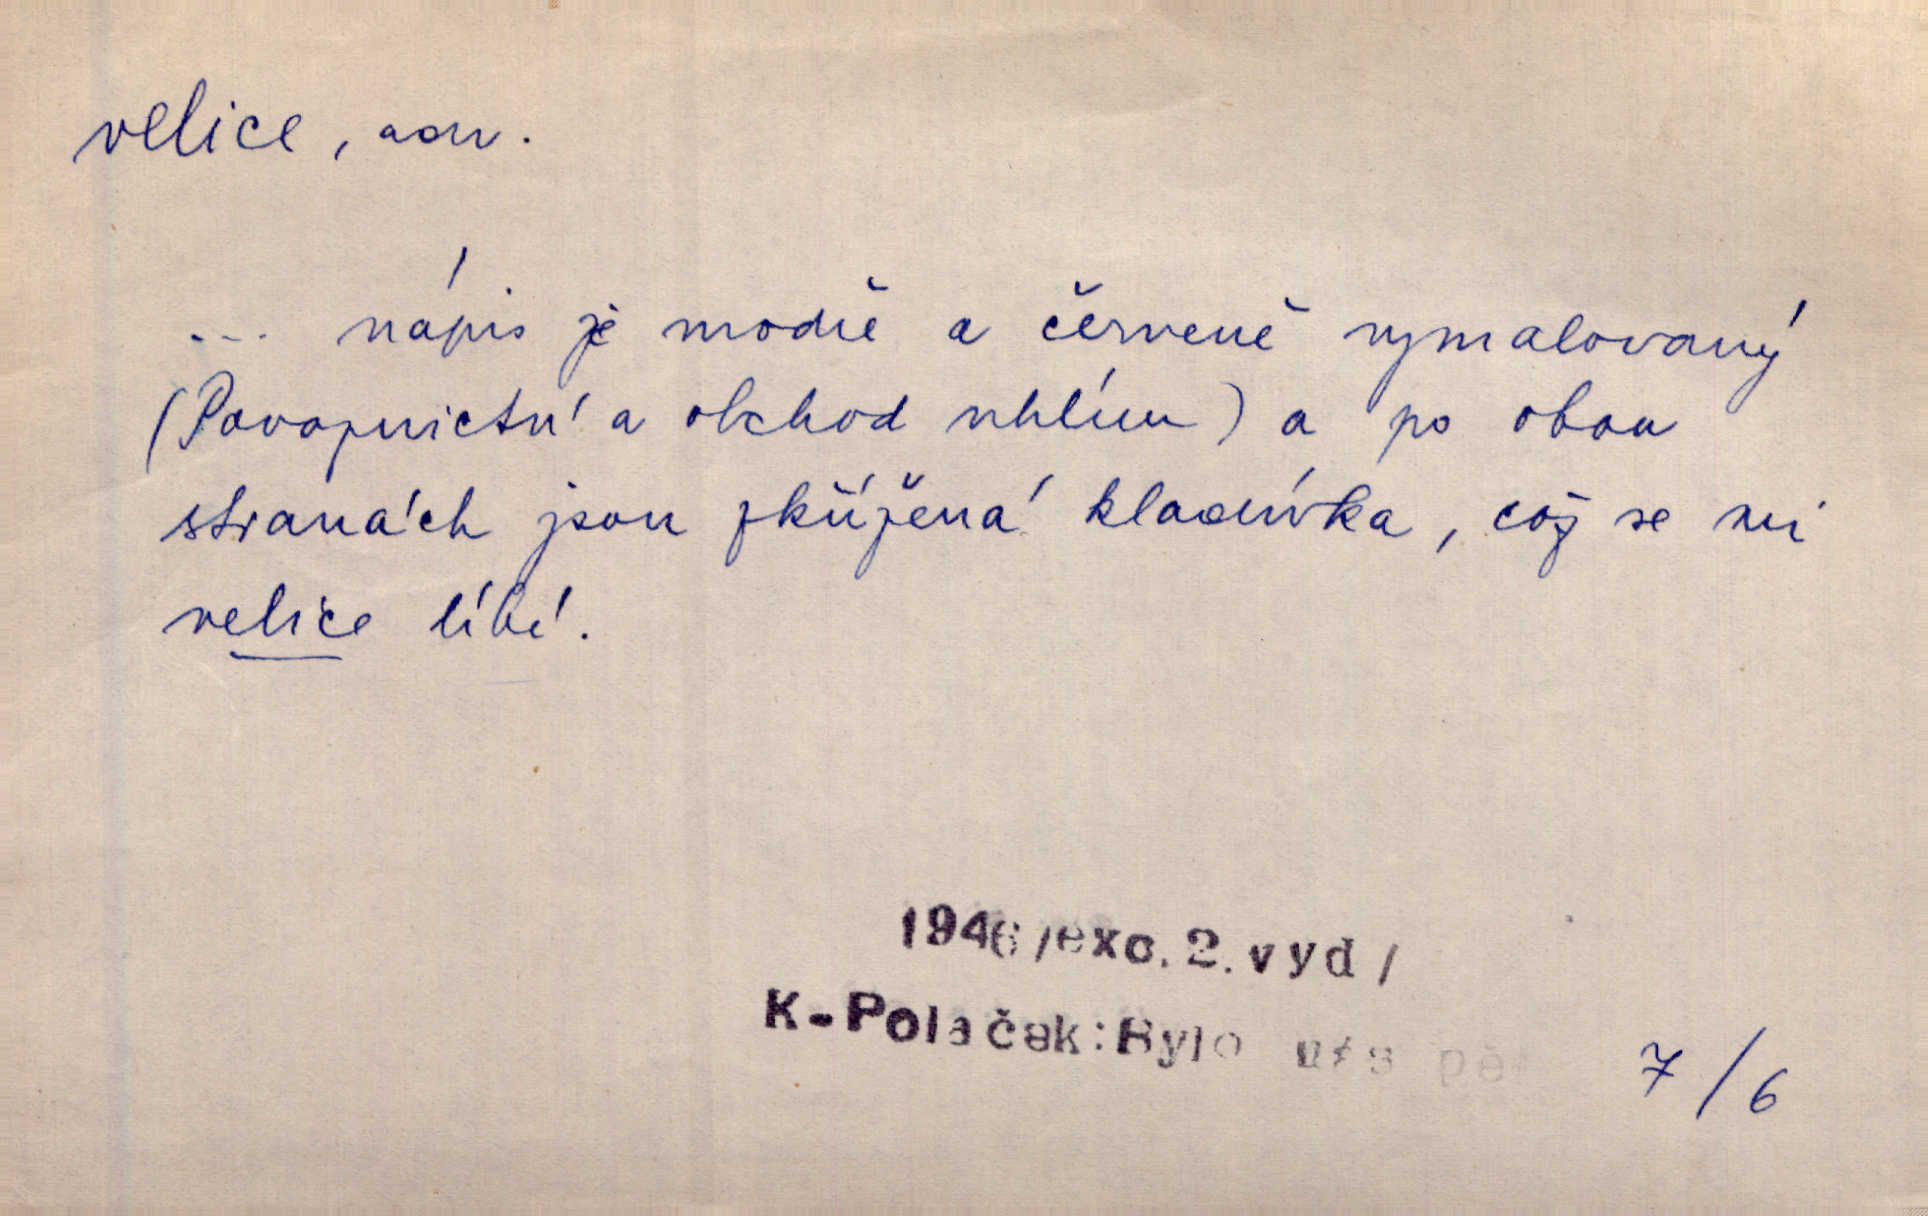 velice, adv.
... nápis je modře a červeně vymalovaný
(Povoznictví a obchod uhlím) a po obou
stranách jsou zkřížená kladívka, což se mi
velice líbí.
1946/exc. 2. vyd/
K-Poláček: Bylo nás pět
7/6